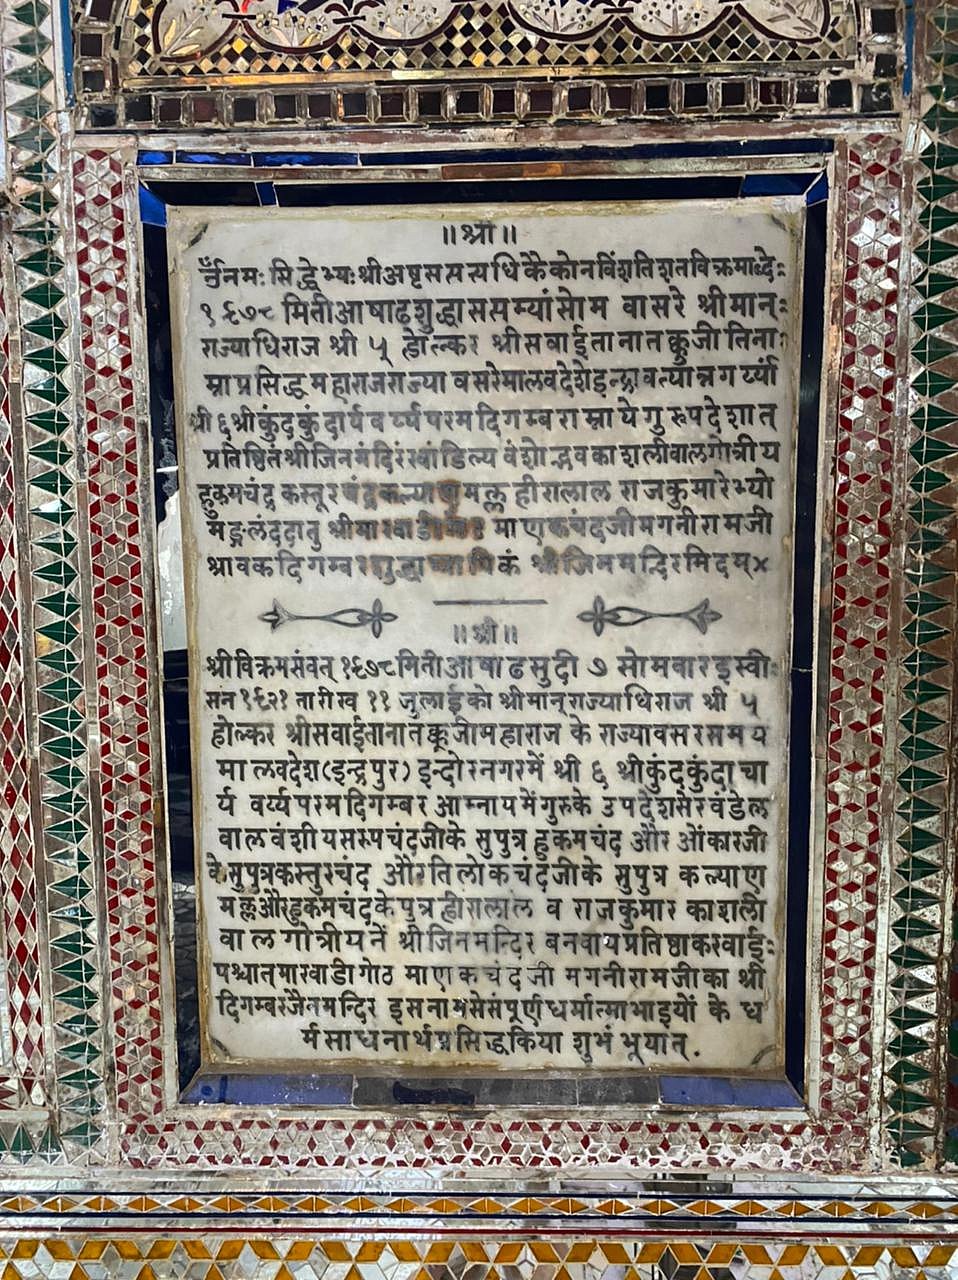 ॥श्री॥
ॐनमः सिद्धेभ्यः श्रीअष्टसप्तत्यधिकैकोनविंशतिशतविक्रमाब्दे:
१९७८ मितीआषाढशुद्धासप्तम्यांसोम वासरे श्रीमान्:
राज्याधिराज श्री ५ होल्कर श्रीसवाईतानातक्कूजीतिना:
म्नाप्रसिद्धमहाराजराज्यावसरेमालवदेशेइन्द्रावत्यान्नगर्य्यां
श्री६श्रीकुंदकुंदार्यवर्य्यपरमदिगम्बराम्नायेगुरुपदेशात्
प्रतिष्ठितंश्रीजिनमंदिरंखांडिल्य वंशोद्भवकाशलीवालगोत्रीय
हुकमचंद्र कस्तूरचंद्रकल्याणमल्ल हीरालाल राजकुमारेभ्यो
मङ्गलंददातु श्रीमारवाडी माणकचंदजीमगनीरामजी
श्रावकदिगम्बर श्रीजिनमन्दिरमिदम्×
॥श्री॥
श्रीविक्रमसंवत् १९७८मितीआषाढसुदी ७ सोमवारइस्वी:
सन १९२१ तारीख ११ जुलाईको श्रीमान्राज्याधिराज श्री ५
होल्कर श्रीसवाईतानातक्कूजीमहाराज के राज्यावसरसमय
मालवदेश(इन्द्रपुर) इन्दोरनगरमें श्री ६ श्रीकुंदकुंदाचा
र्य वर्य्यपरमदिगम्बर आम्नायमेंगुरुके उपदेशसेरवंडेल
वालवंशीयसरुपचंदजीके सुपुत्र हुकमचंद और ओंकारजी
केसुपुत्रकस्तुरचंद औरतिलोकचंदजीके सुपुत्र कल्याण
मल्लऔरहुकमचंदकेपुत्र हीरालाल व राजकुमार काशली
वालगोत्रीयनें श्रीजिनमन्दिर बनवायप्रतिष्ठाकरवाई:
पश्चात्मारवाडीगोठ माणकचंदजी मगनीरामजीका श्री
दिगम्बरजैनमन्दिर इसनामसेसंपूर्णधर्मात्माभाइयों के ध
र्मसाधनार्थप्रसिद्धकिया शुभंभूयात्.